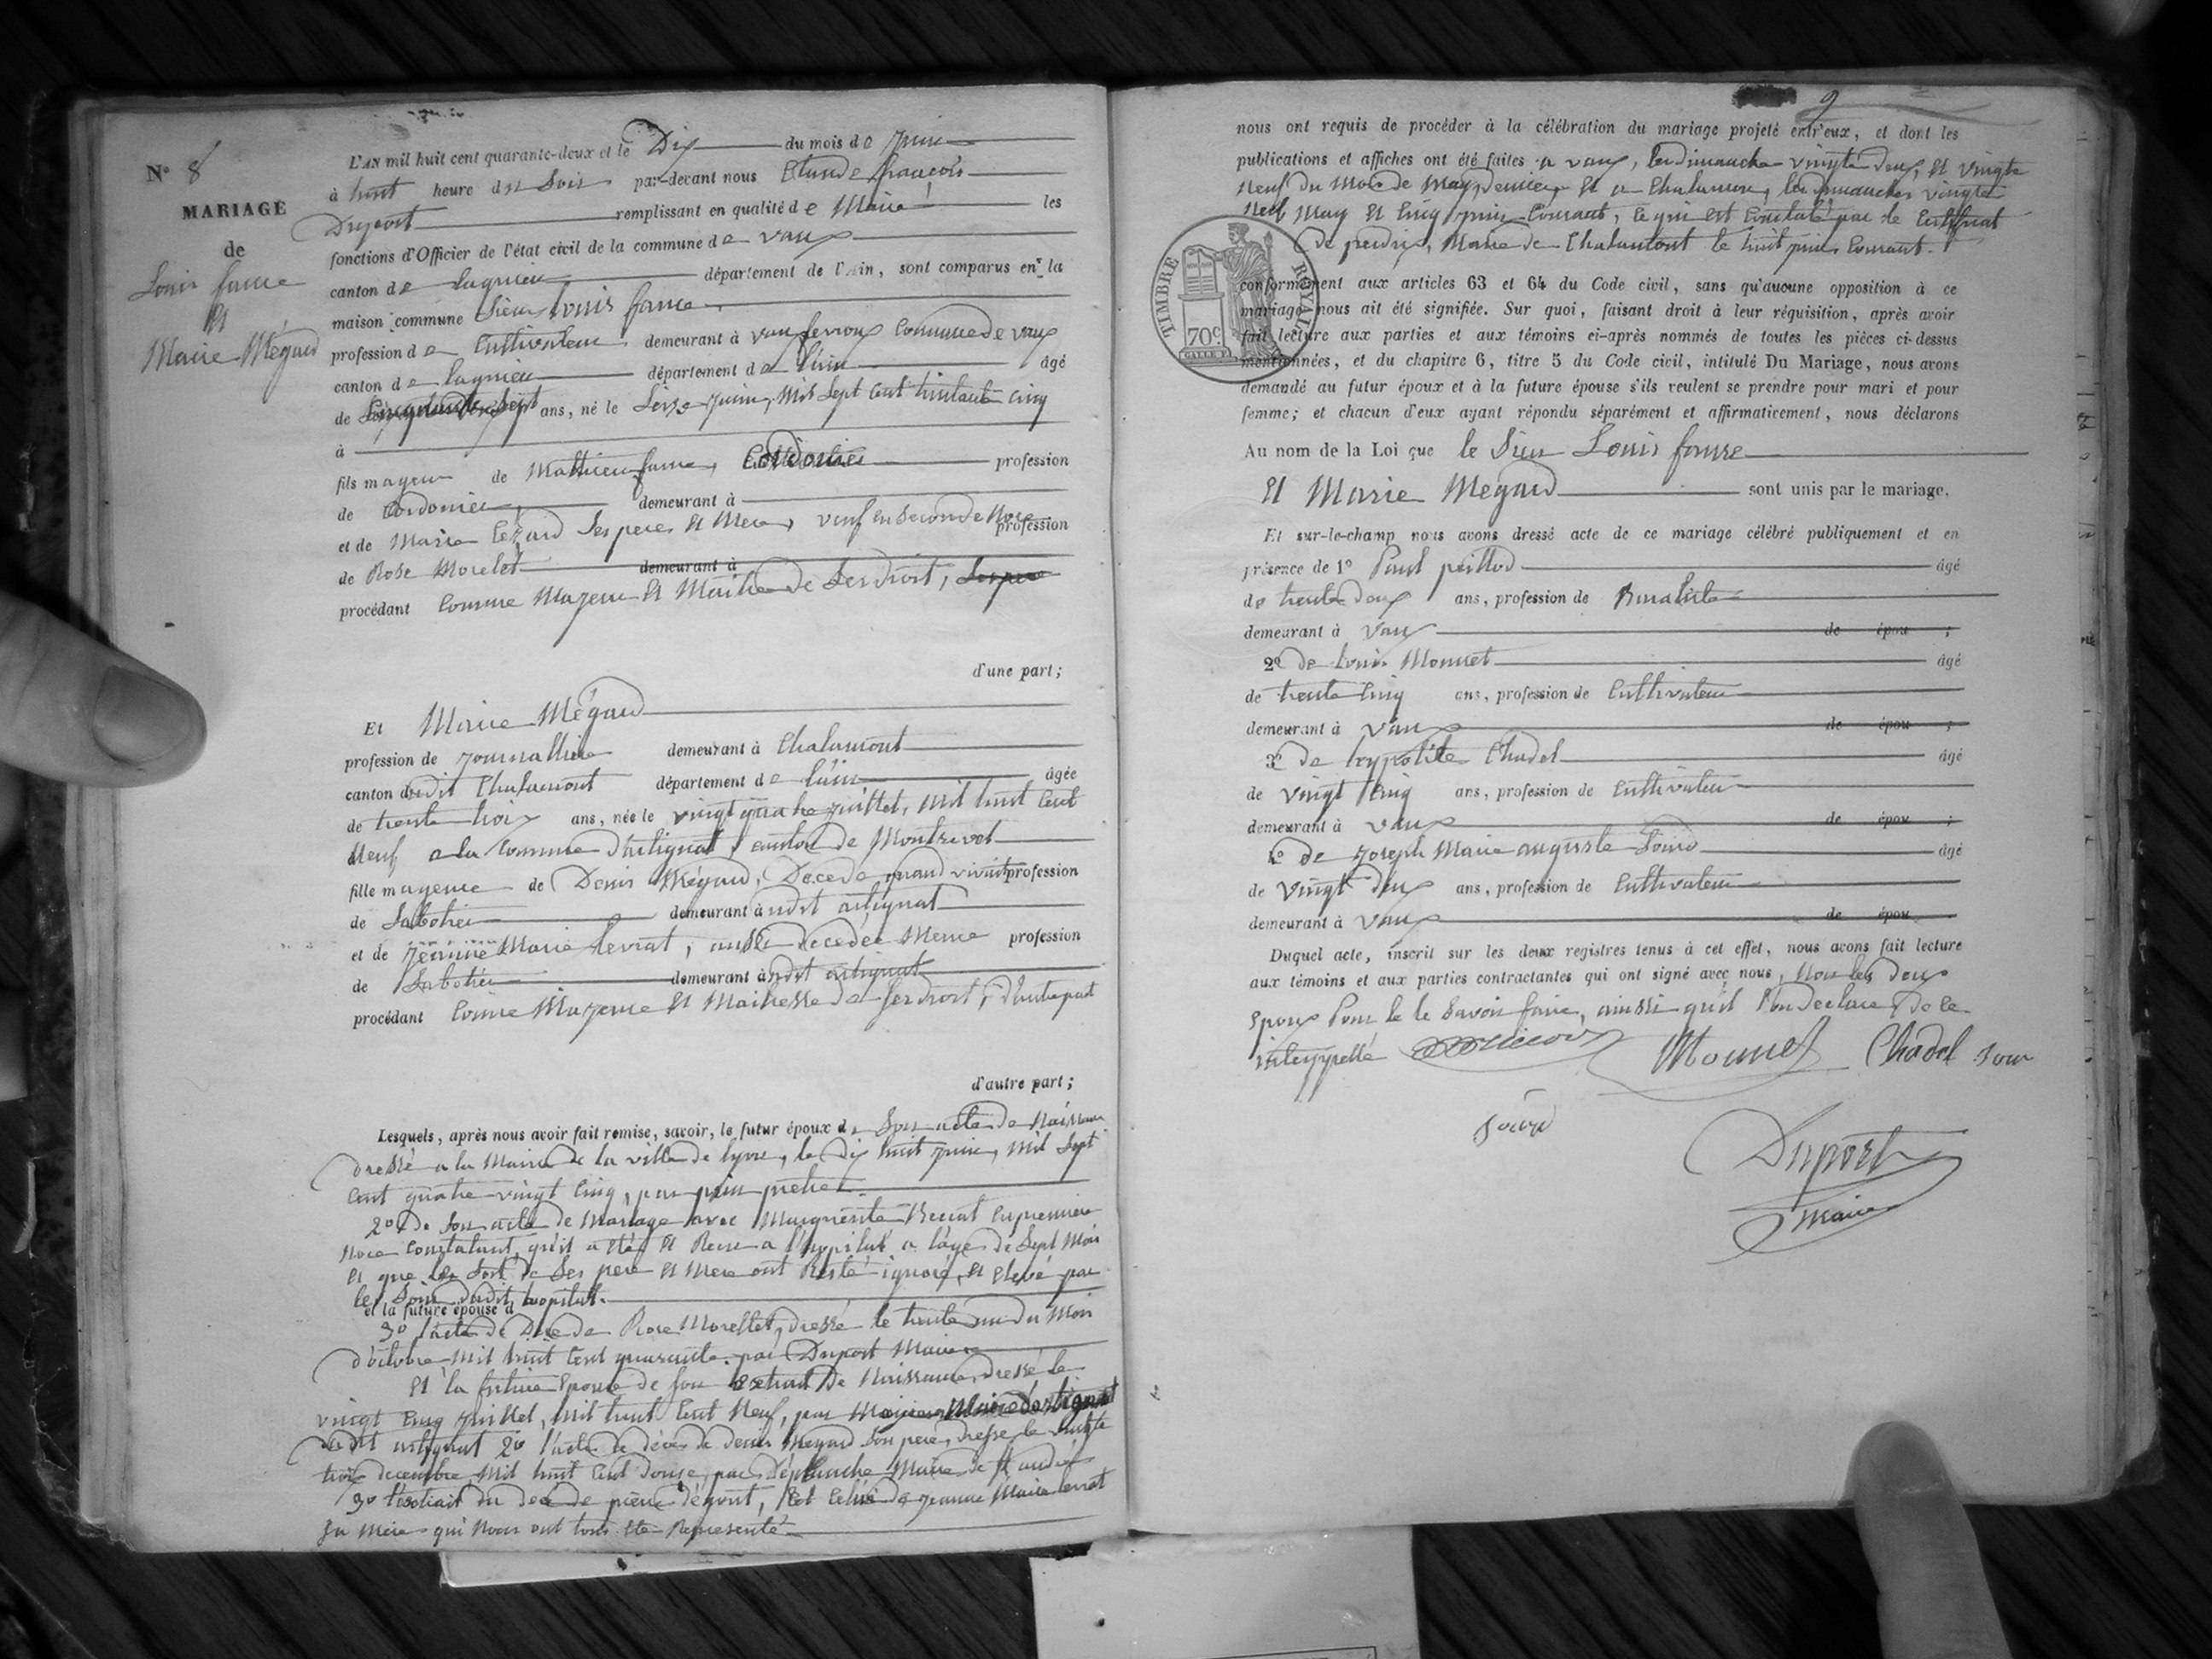 N° 8
MARIAGE
de
Louis faure
Et
Marie Mégard
L'AN mil huit cent quarante-deux et le Dix du mois de Juin
à huit heure du Soir par-devant nous Claude françois
Duport remplissant en qualité de Maire les
fonctions d'Officier de l'état civil de la commune de vaux
canton de Lagnieu département de l'Ain, sont comparus en la
maison commune Sieur Louis faure
profession de Cultivateur demeurant à vaux fevroux Commune de vaux
canton de Lagnieu département de l'ain âgé
de Cinquante Sept ans, né le Seize Juin, Mil Sept Cent huitante cinq
à
fils mayeur de Mathieu faure, Cordonier profession
de Cordonier demeurant à
et de Marie Ses pere Et Mere, veuf en Seconde Noce profession
de Rose Morelet demeurant à
procédant Comme Mayeur Et Maitre de Ses droit,
d'une part;
Et Marie Mégard
profession de Journallière demeurant à Chalamont
canton dudit Chalamont département de l'ain âgée
de trente trois ans, née le vingt quatre Juillet, Mil huit Cent
Neuf a la Commune d'attignat, canton de Montrevel
fille mayeure de Denis Mégard, Décedé quand vivait profession
de Sabotier demeurant audit attignat
et de Jeanne Marie levrat, aussi decedée Meme profession
de Sabotier demeurant audit attignat
procédant Comme Mayeure Et Maitresse de Ses droit, d'autre part
d'autre part;
Lesquels, après nous avoir fait remise, savoir, le futur époux de Son acte de Naissance
dressé a la Mairie de la ville de lyon, le dix huit Juin, Mil Sept
Cent quatre vingt Cinq, par
2° de Son acte de Mariage avec Marguerite En premiere
Noce Constatant, qu'il a été Et Recu a l'hopital a l'age de Sept Mois
Et que le Sort de Ses pere Et Mere ont Resté ignoré, Et Elevé par
les Soins dudit hopital.
et la future épouse d
3° l'acte de Dece de Rose Morellet, dressé le trente un du Mois
d'octobre Mil huit Cent quarante par Duport Maire
Et la future Epouse de Son Extrait de Naissance, dressé le
vingt Cinq Juillet, Mil huit Cent Neuf, par Maire d'attignat
dudit attignat 2° l'acte de décès de denis Megard Son pere, dressé le vingt
trois decembre Mil huit Cent douze, par Maire de St andré
3° l'Extrait du decé de pierre Et Celui de Jeanne Marie levrat
Sa Mere qui Nous ont tous Eté Representé
9
nous ont requis de procéder à la célébration du mariage projeté entr'eux, et dont les
publications et affiches ont été faites a vaux, les dimanche vingt deux, Et vingt
Neuf du Mois de May, dernier, Et a Chalamont, les dimanches vingt
Neuf May Et Cinq Juin Courant, Ce qui Est Constaté par le Certificat
de perdrix, Maire de Chalamont le huit Juin Courant.
TIMBRE ROYAL
70c
conformément aux articles 63 et 64 du Code civil, sans qu'aucune opposition à ce
mariage nous ait été signifiée. Sur quoi, faisant droit à leur réquisition, après avoir
fait lecture aux parties et aux témoins ci-après nommés de toutes les pièces ci-dessus
mentionnées, et du chapitre 6, titre 5 du Code civil, intitulé Du Mariage, nous avons
demandé au futur époux et à la future épouse s'ils veulent se prendre pour mari et pour
femme; et chacun d'eux ayant répondu séparément et affirmativement, nous déclarons
Au nom de la Loi que le Sieur Louis faure
Et Marie Mégard sont unis par le mariage.
Et sur-le-champ nous avons dressé acte de ce mariage célébré publiquement et en
présence de 1° Paul âgé
de trente deux ans, profession de Buraliste
demeurant à Vaux de épou ;
2° de Louis Monnet âgé
de trente Cinq ans, profession de Cultivateur
demeurant à vaux de épou ;
3° de hypolite Chadel âgé
de vingt Cinq ans, profession de Cultivateur
demeurant à vaux de épou ;
4° de Joseph Marie auguste âgé
de vingt deux ans, profession de Cultivateur
demeurant à vaux de épou
Duquel acte, inscrit sur les deux registres tenus à cet effet, nous avons fait lecture
aux témoins et aux parties contractantes qui ont signé avec nous, Non les deux
Epoux Pour Ne le Savoir faire, ainsi qu'il l'on declaré de Ce
interppellé Monnet Chadel
Duport
Maire